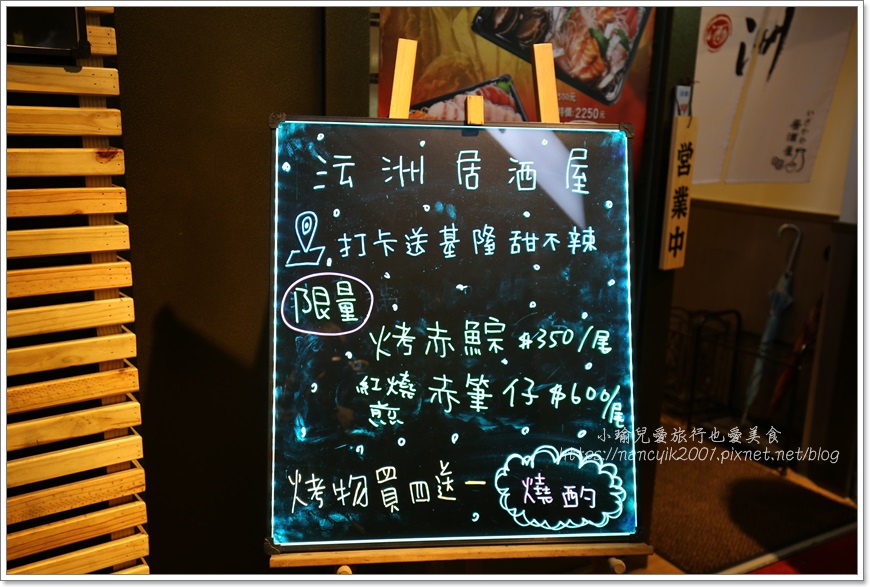 沄洲居酒屋
打卡送基隆甜不辣
限量
烤赤鯮 $350/尾
紅燒
煎
赤筆仔 $600/尾
烤物買四送一
燒酌
營業中
特價: 2250元
酒
いざかや
居酒屋
小瑜兒愛旅行也愛美食
https://nancyik2001.pixnet.net/blog